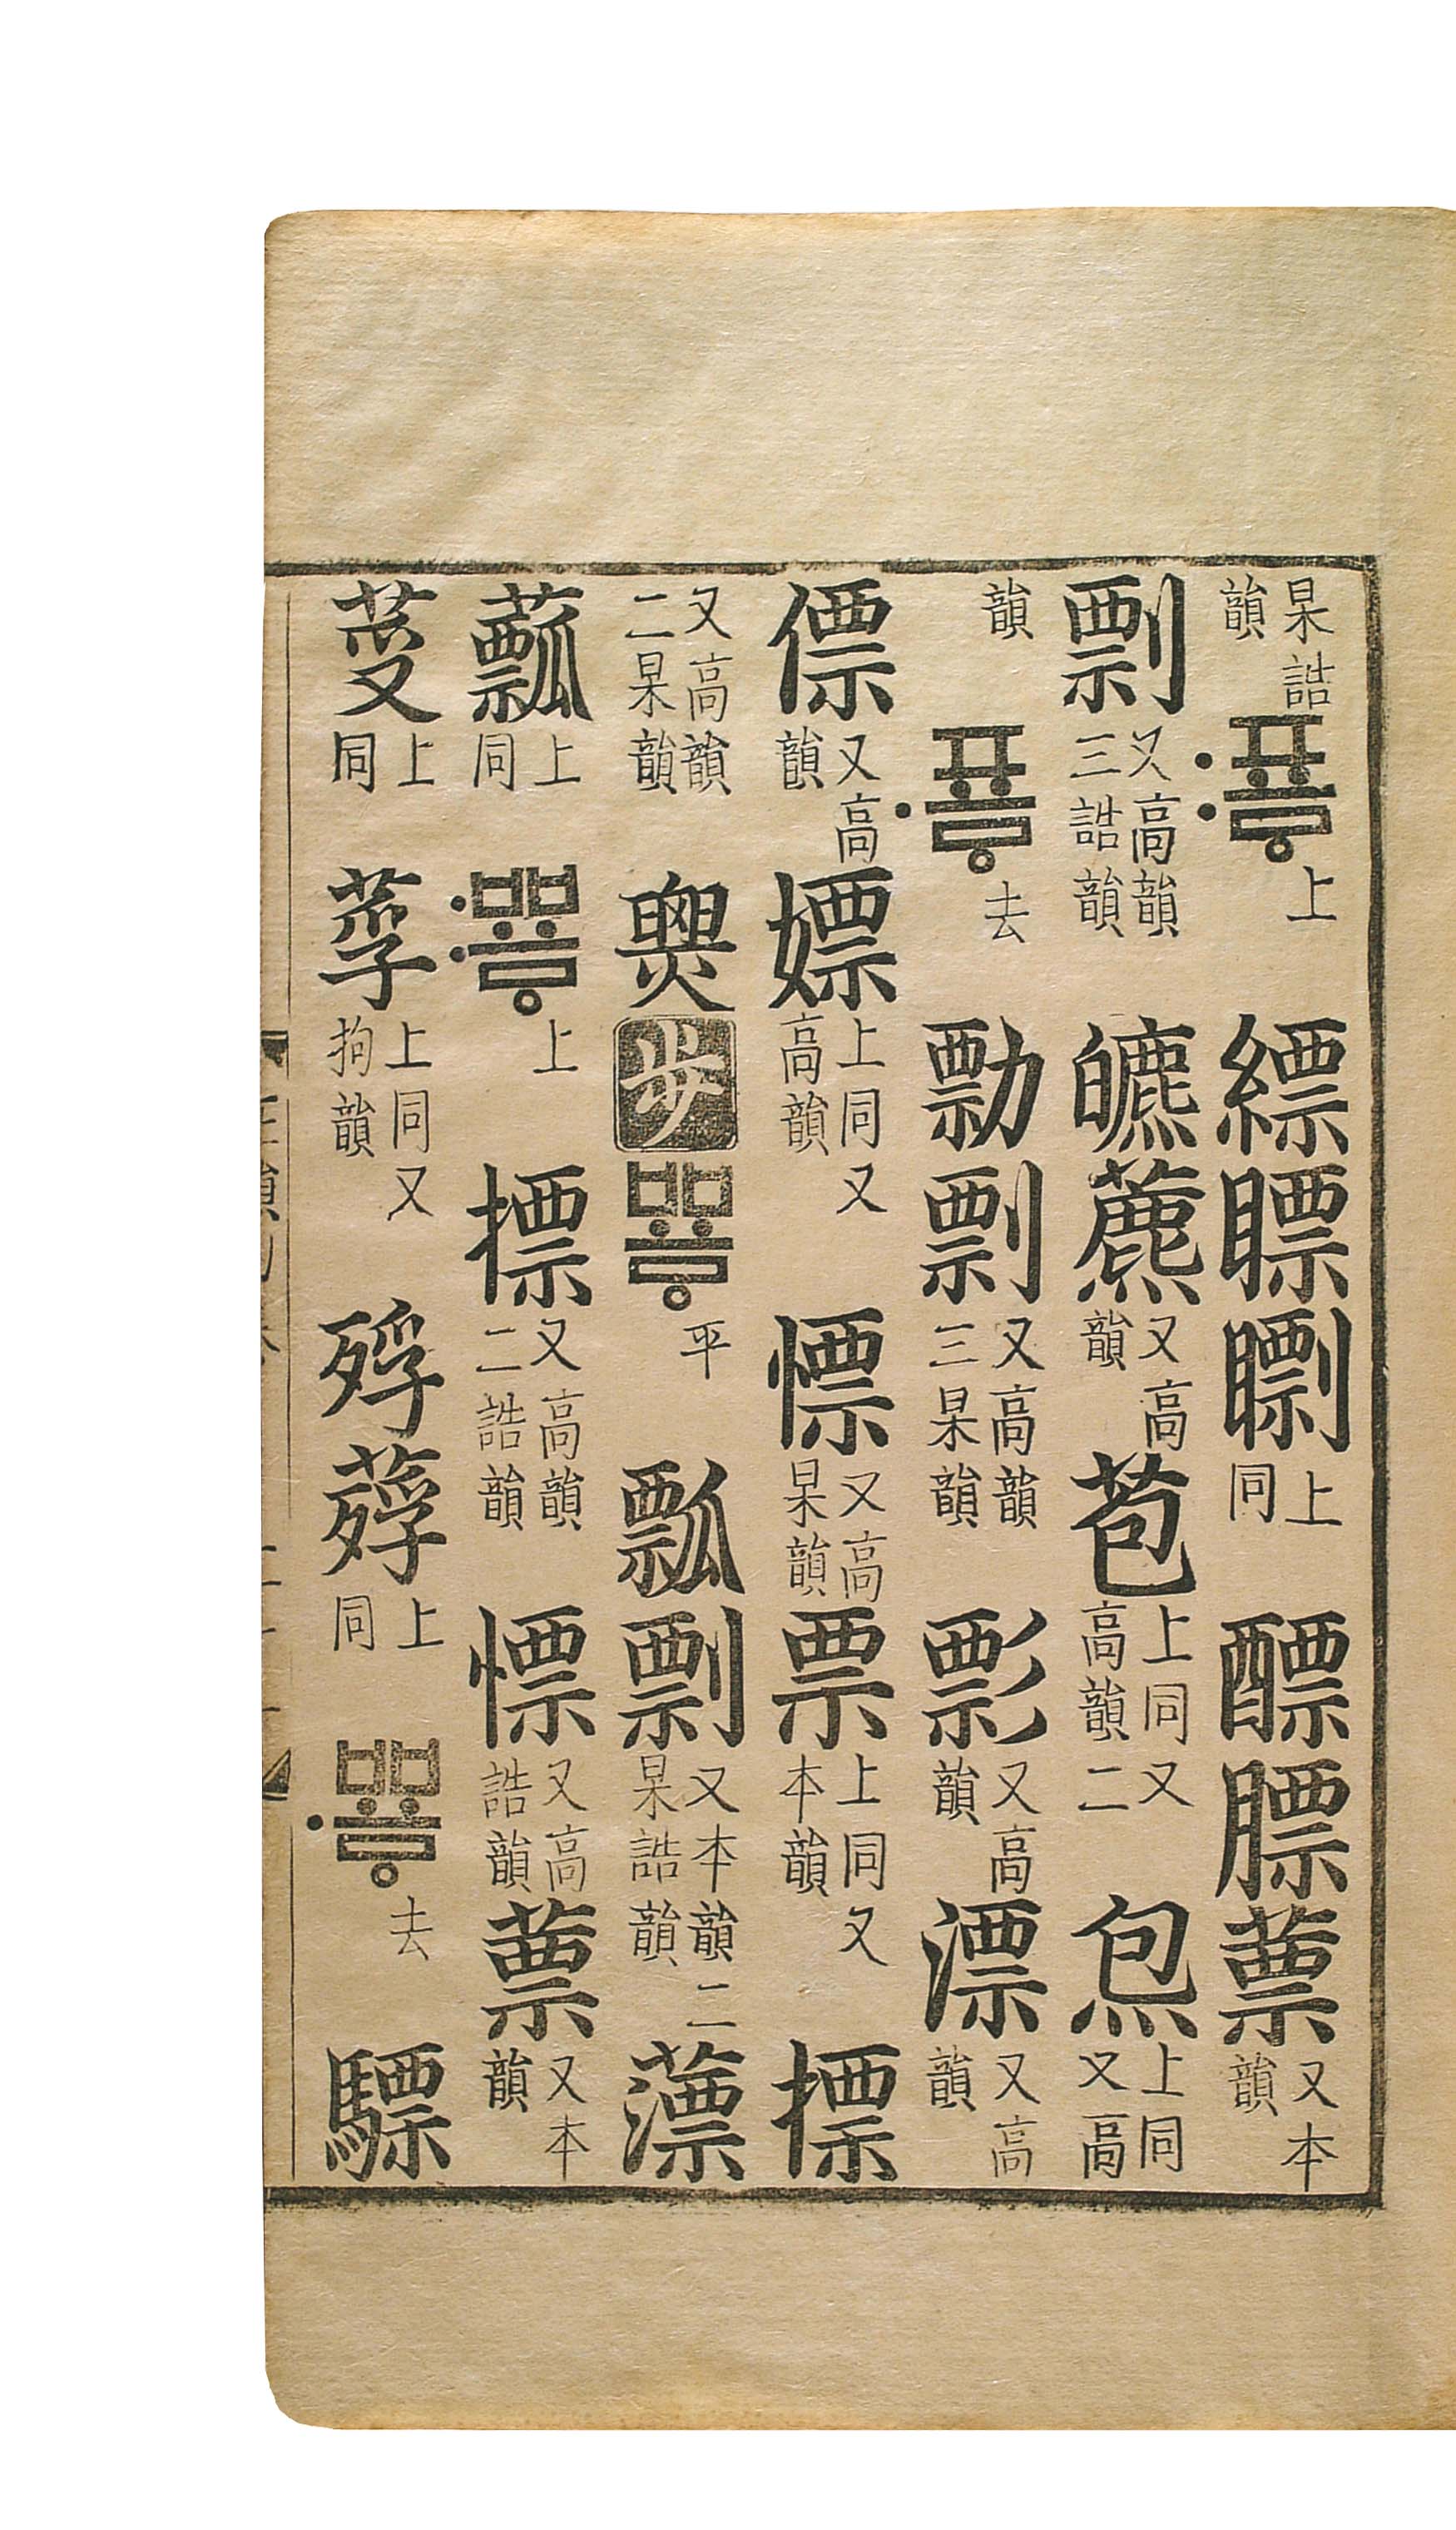 杲誥韻 〯표ᇢ 上 縹瞟 上同 醥膘蔈 又本韻
剽 又高韻三誥韻 皫藨 又高韻 苞 上同又二高韻 炰 上同又高
韻 〮표ᇢ 去 勡剽 又高韻三杲韻 彯 又高韻 漂 又高韻
僄 又高韻 嫖 上同又高韻 慓 又高杲韻 票 上同又本韻 摽
又高韻二杲韻 步 뾰ᇢ 平 瓢剽 又本韻二杲誥韻 薸
上同 〯뾰ᇢ 上 摽 又高韻二誥韻 慓 又高誥韻 蔈 又本韻
上同 莩 上同又拘韻 殍 上同 〮뾰ᇢ 去 驃